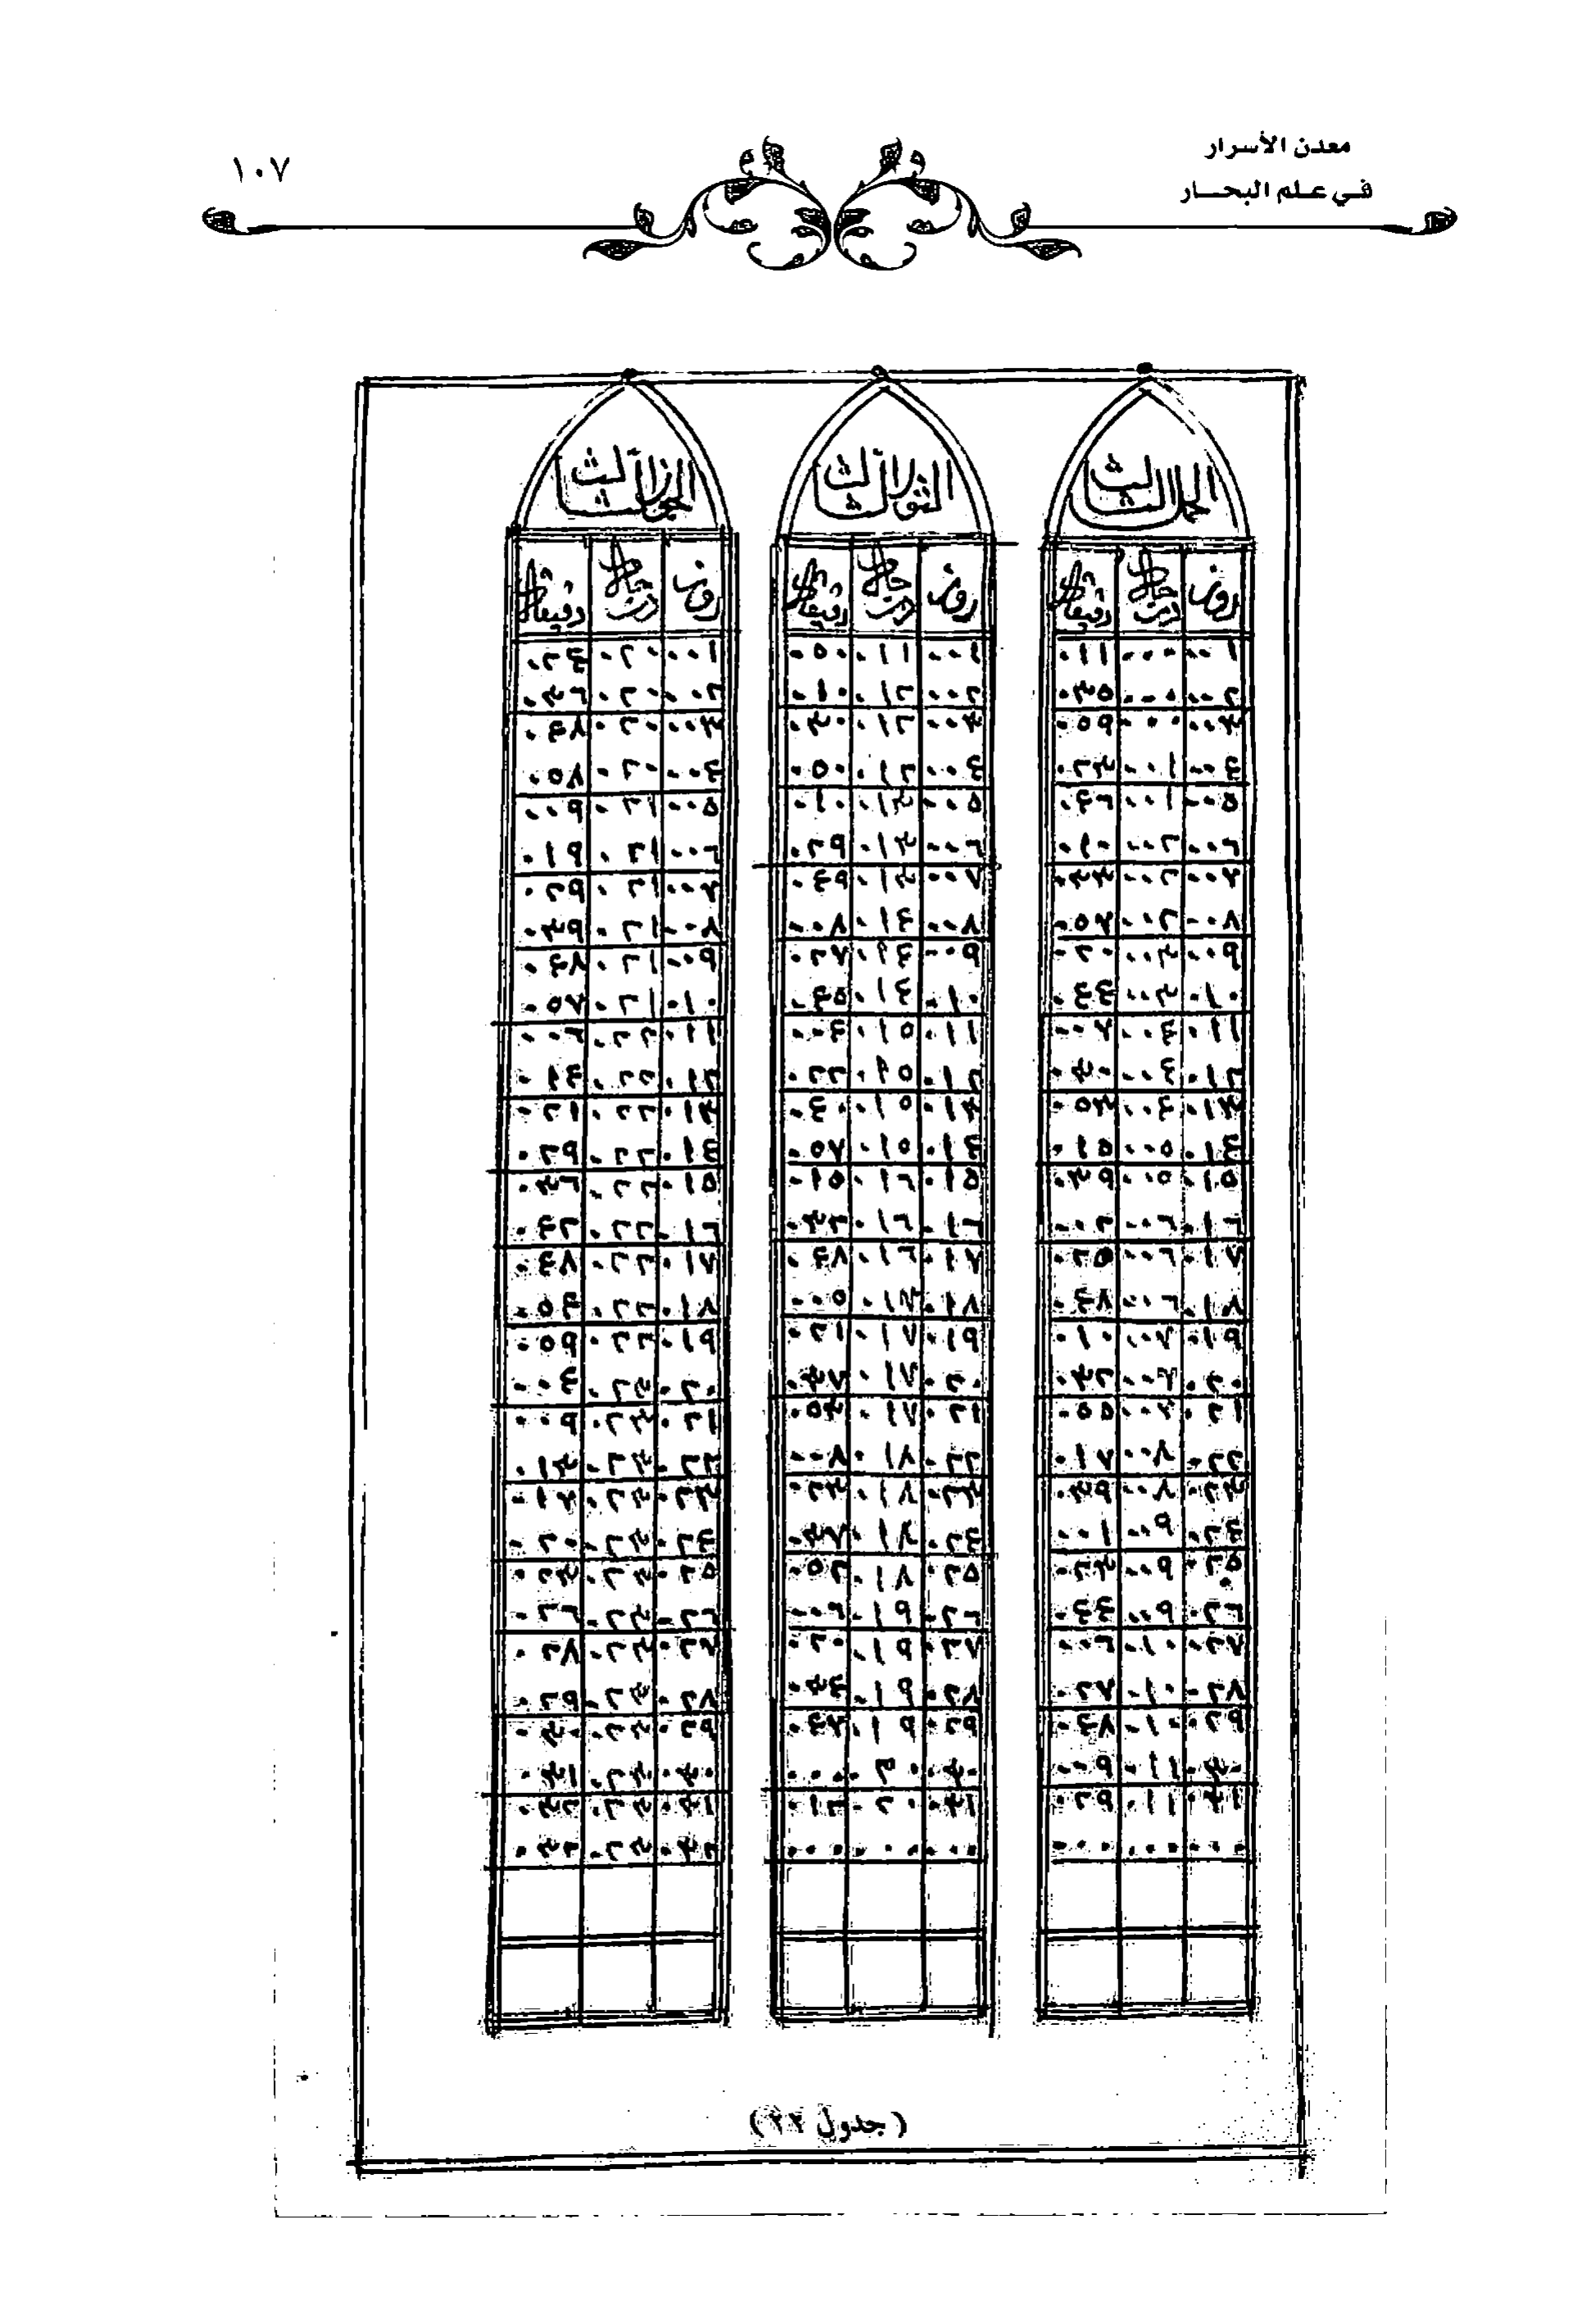 معدن الأسرار
في علم البحــار
١٠٧
الحمل الثالث
روز درجات دقيقات
٠٠١ ٠٠٠ ٠١١
٠٠٢ ٠٠٠ ٠٣٥
٠٠٣ ٠٠٠ ٠٥٩
٠٠٤ ٠٠١ ٠٢٣
٠٠٥ ٠٠١ ٠٤٦
٠٠٦ ٠٠٢ ٠١٠
٠٠٧ ٠٠٢ ٠٣٣
٠٠٨ ٠٠٢ ٠٥٧
٠٠٩ ٠٠٣ ٠٢٠
٠١٠ ٠٠٣ ٠٤٤
٠١١ ٠٠٤ ٠٠٧
٠١٢ ٠٠٤ ٠٣٠
٠١٣ ٠٠٤ ٠٥٣
٠١٤ ٠٠٥ ٠١٥
٠١٥ ٠٠٥ ٠٣٩
٠١٦ ٠٠٦ ٠٠٢
٠١٧ ٠٠٦ ٠٢٥
٠١٨ ٠٠٦ ٠٤٨
٠١٩ ٠٠٧ ٠١٠
٠٢٠ ٠٠٧ ٠٣٢
٠٢١ ٠٠٧ ٠٥٥
٠٢٢ ٠٠٨ ٠١٧
٠٢٣ ٠٠٨ ٠٣٩
٠٢٤ ٠٠٩ ٠٠١
٠٢٥ ٠٠٩ ٠٢٣
٠٢٦ ٠٠٩ ٠٤٤
٠٢٧ ٠١٠ ٠٠٦
٠٢٨ ٠١٠ ٠٢٧
٠٢٩ ٠١٠ ٠٤٨
٠٣٠ ٠١١ ٠٠٩
٠٣١ ٠١١ ٠٢٩
٠٠٠ ٠٠٠ ٠٠٠
الثور الثالث
روز درجات دقيقات
٠٠١ ٠١١ ٠٥٠
٠٠٢ ٠١٢ ٠١٠
٠٠٣ ٠١٢ ٠٣٠
٠٠٤ ٠١٢ ٠٥٠
٠٠٥ ٠١٣ ٠١٠
٠٠٦ ٠١٣ ٠٢٩
٠٠٧ ٠١٣ ٠٤٩
٠٠٨ ٠١٤ ٠٠٨
٠٠٩ ٠١٤ ٠٢٧
٠١٠ ٠١٤ ٠٤٥
٠١١ ٠١٥ ٠٠٤
٠١٢ ٠١٥ ٠٢٢
٠١٣ ٠١٥ ٠٤٠
٠١٤ ٠١٥ ٠٥٧
٠١٥ ٠١٦ ٠١٥
٠١٦ ٠١٦ ٠٣٢
٠١٧ ٠١٦ ٠٤٨
٠١٨ ٠١٧ ٠٠٥
٠١٩ ٠١٧ ٠٢١
٠٢٠ ٠١٧ ٠٣٧
٠٢١ ٠١٧ ٠٥٣
٠٢٢ ٠١٨ ٠٠٨
٠٢٣ ٠١٨ ٠٢٣
٠٢٤ ٠١٨ ٠٣٧
٠٢٥ ٠١٨ ٠٥٢
٠٢٦ ٠١٩ ٠٠٦
٠٢٧ ٠١٩ ٠٢٠
٠٢٨ ٠١٩ ٠٣٤
٠٢٩ ٠١٩ ٠٤٧
٠٣٠ ٠٢٠ ٠٠٠
٠٣١ ٠٢٠ ٠١٢
٠٠٠ ٠٠٠ ٠٠٠
الجوزا الثالث
روز درجات دقيقات
٠٠١ ٠٢٠ ٠٢٤
٠٠٢ ٠٢٠ ٠٣٦
٠٠٣ ٠٢٠ ٠٤٨
٠٠٤ ٠٢٠ ٠٥٨
٠٠٥ ٠٢١ ٠٠٩
٠٠٦ ٠٢١ ٠١٩
٠٠٧ ٠٢١ ٠٢٩
٠٠٨ ٠٢١ ٠٣٩
٠٠٩ ٠٢١ ٠٤٨
٠١٠ ٠٢١ ٠٥٧
٠١١ ٠٢٢ ٠٠٦
٠١٢ ٠٢٢ ٠١٤
٠١٣ ٠٢٢ ٠٢١
٠١٤ ٠٢٢ ٠٢٩
٠١٥ ٠٢٢ ٠٣٦
٠١٦ ٠٢٢ ٠٤٢
٠١٧ ٠٢٢ ٠٤٨
٠١٨ ٠٢٢ ٠٥٤
٠١٩ ٠٢٢ ٠٥٩
٠٢٠ ٠٢٣ ٠٠٤
٠٢١ ٠٢٣ ٠٠٩
٠٢٢ ٠٢٣ ٠١٣
٠٢٣ ٠٢٣ ٠١٧
٠٢٤ ٠٢٣ ٠٢٠
٠٢٥ ٠٢٣ ٠٢٣
٠٢٦ ٠٢٣ ٠٢٦
٠٢٧ ٠٢٣ ٠٢٨
٠٢٨ ٠٢٣ ٠٢٩
٠٢٩ ٠٢٣ ٠٣٠
٠٣٠ ٠٢٣ ٠٣١
٠٣١ ٠٢٣ ٠٣٢
٠٣٢ ٠٢٣ ٠٣٢
(جدول ٢٢)